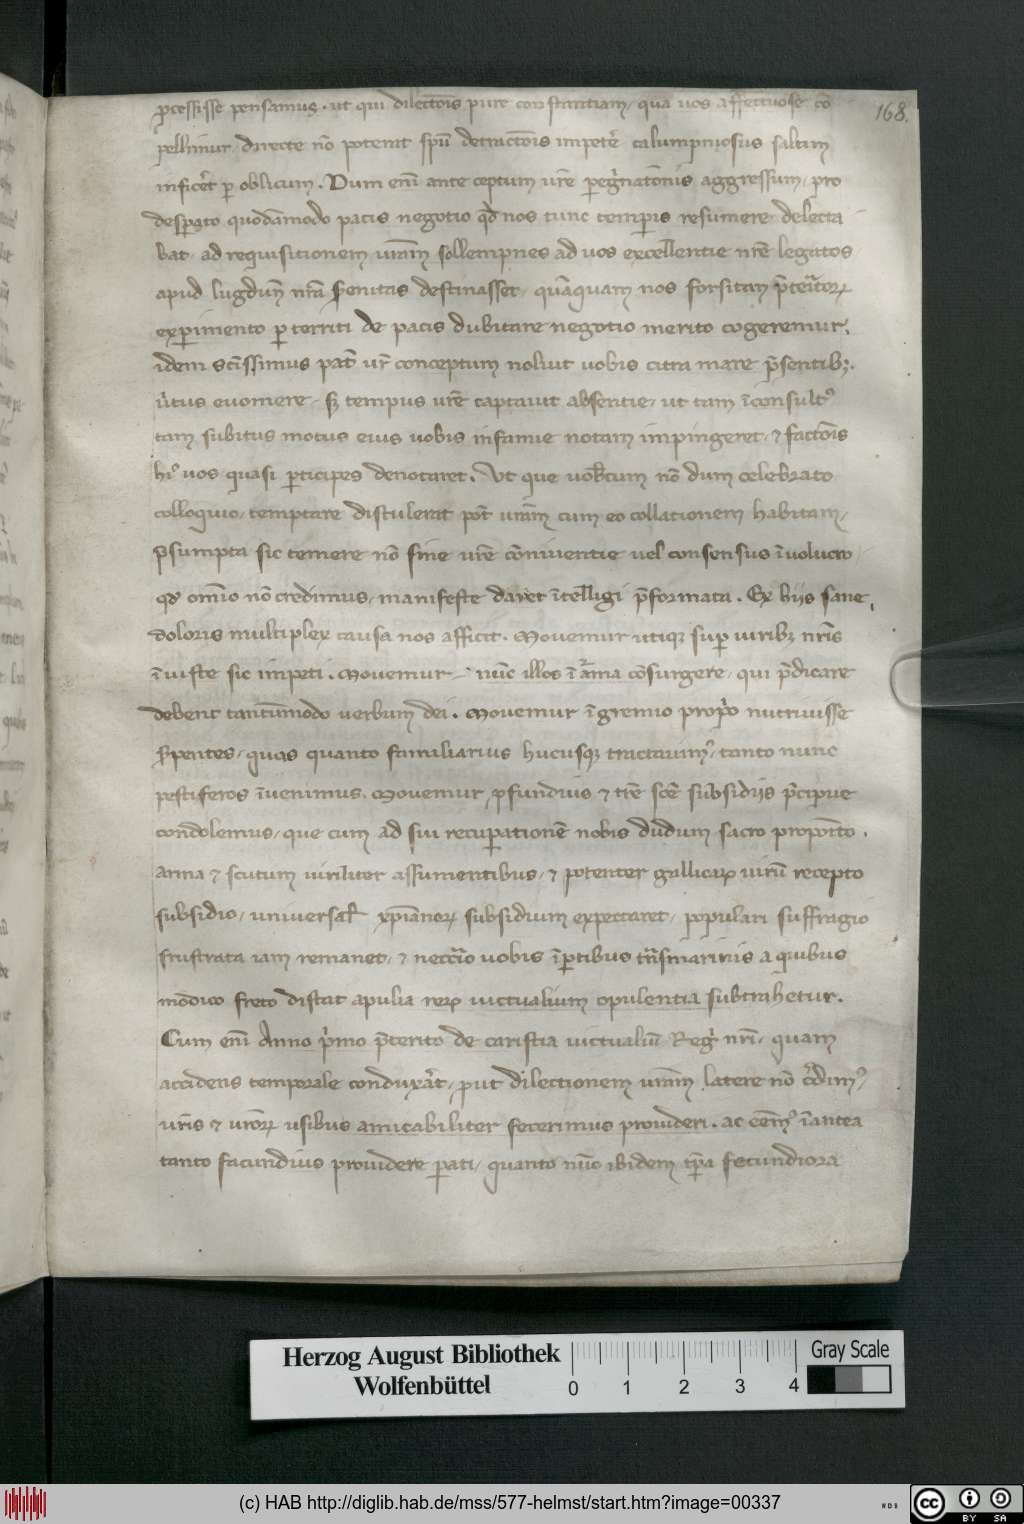 ꝓcessisse pensamus. ut qui dilectōis pure constantiam, qua uos affectuose cō
pellimur, directe nō poterat spū detractōis impetē calumpniosus saltim
inficēt ꝑ oblicum. Dum enī ante ceptum ur̄e ꝑeg̓natōnis aggressum, pro
desꝑato quodāmodo pacis negotio qd̄ nos tunc temꝑis resumere delecta
bat, ad requisitionem ur̄am sollempnes ad uos excellentie nr̄e legatos
apud lugdun̄ nr̄a Serenitas destinasset, quāquam nos forsitan p̄teritorꝝ
exꝑimento ꝑterriti de pacis dubitare negotio merito cogeremur,
idem sc̄issimus pat̄ ur̄ conceptum noluit uobis citra mare p̄sentibꝫ.
uirus euomere, sꝫ tempus ur̄e captauit absentie, ut tam īconsult᾿
tam subitus motus eius uobis infamie notam impingeret, ⁊ factōis
hi᾿ uos quasi ꝑticipes denotaret. Ut que uobcum nō dum celebrato
colloquio, temptare distulerat pot̄ uram̄ cum eo collationem habitam,
p̄sumpta sic temere nō sine ur̄e cōniuentie uel consensus īuolucro
qd̓ omīo nō credimus, manifeste daret ītelligi p̄formata. Ex hijs sane,
doloris multiplex causa nos afficit. Mouemur utiqꝫ suꝑ uiribꝫ nr̄is
īiuste sic impeti. Mouemur, nūc illos ī arma cōsurgere, qui p̄dicare
debent tantūmodo uerbum dei. Mouemur ī gremio prop̓o nutriuisse
serpentes, quos quanto familiarius hucusqꝫ tractauim᾿, tanto nunc
pestiferos īuenimus. Mouemur ꝓfundius ⁊ tr̄e sc̄e subsidijs p̄cipue
condolemus, que cum ad sui recuꝑationē nobis dudum sacro proposito.
arma ⁊ scutum uiriliter assumentibus, ⁊ potenter gallicorꝝ uirū recepto
subsidio, uniuersal̄ xp̄ianorꝝ subsidium expectaret, populari suffragio
frustrata iam remanet, ⁊ neccīo uobis ī ꝑtibus trāsmarinis a quibus
modico freto distat apulia rerꝝ uictualium opulentia subtrahetur.
Cum enī Anno p̓mo p̄terito de caristia uictualiū Reg̓ nr̄i, quam
accidens temporale conduxāt, ꝓut dilectionem uram̄ latere nō c̓dim᾿,
ur̄is ⁊ uror̄ꝝ usibus amicabiliter fecerimus prouideri. ac eēm᾿ īantea
tanto facundius prouidere ꝑati, quanto nūc ibidem tꝑa fecundiora
168.
Herzog August Bibliothek
Wolfenbüttel
0 1 2 3 4
Gray Scale
(c) HAB http://diglib.hab.de/mss/577-helmst/start.htm?image=00337
WDB
cc BY SA